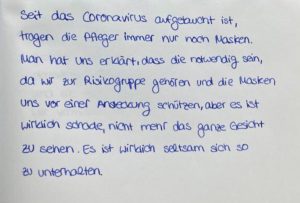 Seit das Coronavirus aufgetaucht ist,
tragen die Pfleger immer nur noch Masken.
Man hat uns erklärt, dass die notwendig sein,
da wir zur Risikogruppe gehören und die Masken
uns vor einer Ansteckung schützen, aber es ist
wirklich schade, nicht mehr das ganze Gesicht
zu sehen. Es ist wirklich seltsam sich so
zu unterhalten.